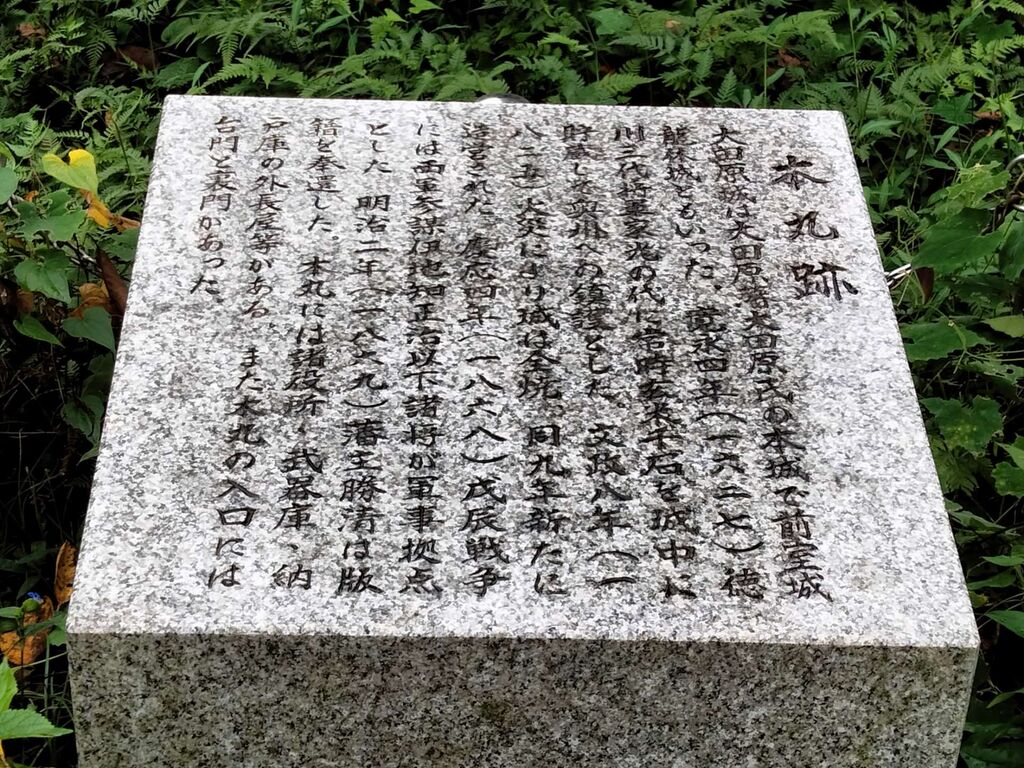 本丸跡
大田原城は大田原藩大田原氏の本城で前室城
龍体城ともいった。寛永四年(一六二七)徳
川三代将軍家光の代に常時玄米千石を城中に
貯蔵して奥州への鎮護とした。文政八年(一
八二五)火災により城は全焼、同九年新たに
造営された。慶応四年(一八六八)戊辰戦争
には西軍参謀伊地知正治以下諸将が軍事拠点
とした。明治二年(一八六九)藩主勝清は版
籍を奉還した。本丸には諸役所・武器庫、納
戸庫の外長屋等がある。また本丸の入口には
台門と裏門があった。